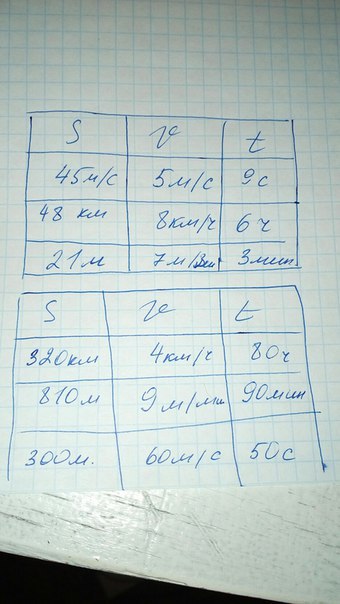 S v t
45м/с 5м/с 9с
48 км 8км/ч 6ч
21м 7м/мин 3мин
S v t
320км 4км/ч 80ч
810м 9м/мин 90мин
300м. 60м/с 50с